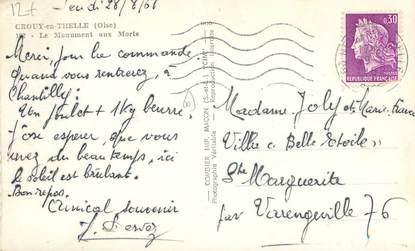 12f
Jeudi 28/8/67
CROUY-en-THELLE (Oise)
- Le Monument aux Morts
Merci, pour la commande.
quand vous rentrerez, à
Chantilly:
Un poulet + 1kg beurre.
J'ose espérer, que vous
avez du beau temps, ici
le soleil est brûlant.
Bon repos.
Amical souvenir
COMBIER IMP. MACON (S.-et-L.) "CIM"
Photographie Véritable - Reproduction interdite
0,30
REPUBLIQUE FRANÇAISE
Madame Joly et Marie-France
Villa « Belle Etoile »
Ste Marguerite
par Varengeville 76